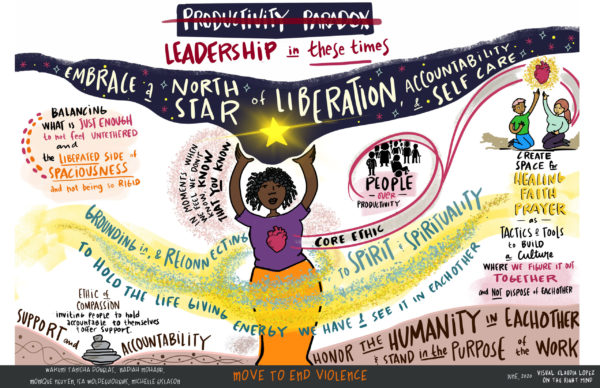 PRODUCTIVITY PARADOX
LEADERSHIP in these times
EMBRACE a NORTH STAR of LIBERATION, ACCOUNTABILITY, & SELF CARE
BALANCING
WHAT is JUST ENOUGH
to not feel UNTETHERED
and
the LIBERATED SIDE of
SPACIOUSNESS
and not being so RIGID
IN MOMENTS WHEN
WE FEEL WE DON'T
KNOW, KNOW
THAT YOU KNOW
PEOPLE
over
PRODUCTIVITY
CORE ETHIC
CREATE
SPACE for
HEALING
FAITH
PRAYER
as
TACTICS & TOOLS
to BUILD
a CULTURE
WHERE WE FIGURE IT OUT
TOGETHER
and NOT DISPOSE of EACHOTHER
GROUNDING in, & RECONNECTING TO SPIRIT & SPIRITUALITY
TO HOLD THE LIFE GIVING ENERGY WE HAVE & SEE IT IN EACHOTHER
ETHIC of
COMPASSION
inviting PEOPLE to HOLD
accountable to themselves
& offer SUPPORT.
SUPPORT and ACCOUNTABILITY
HONOR THE HUMANITY IN EACHOTHER
& STAND in the PURPOSE of the WORK
WAKUMI DOUGLAS,
MONIQUE NGUYEN, ISA WOLDEGUIORGUIS, MICHELLE GISLASON
MOVE TO END VIOLENCE
JUNE, 2020
VISUAL CLAUDIA LOPEZ
ON THE RIGHT MIND